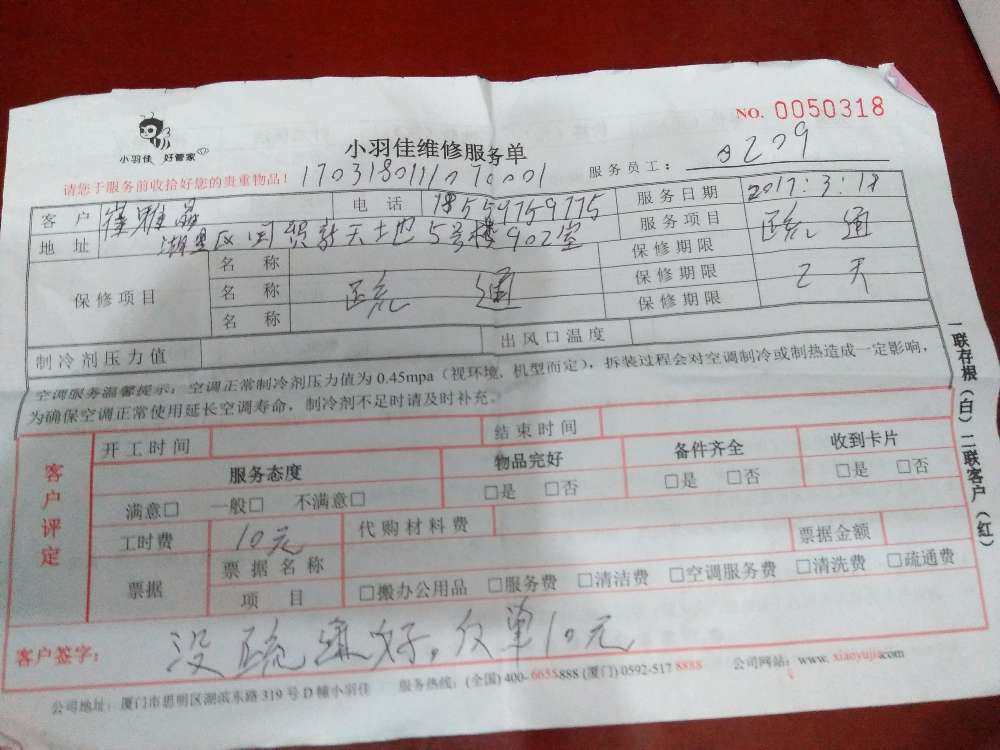 NO. 0050318
小羽佳 好管家
小羽佳维修服务单
请您于服务前收拾好您的贵重物品!
服务员工: 0209
客户 雅晶 电话 18559759775 服务日期 2017:3:18
地址 湖里区国贸新天地5号楼902室 服务项目 疏通
保修项目 名称 保修期限
名称 疏通 保修期限 2天
名称 保修期限
制冷剂压力值 出风口温度
空调服务温馨提示: 空调正常制冷剂压力值为0.45mpa(视环境、机型而定),拆装过程会对空调制冷或制热造成一定影响,
为确保空调正常使用延长空调寿命,制冷剂不足时请及时补充。
客户评定
开工时间 结束时间
服务态度 物品完好 备件齐全 收到卡片
满意□ 一般□ 不满意□ □是 □否 □是 □否 □是 □否
工时费 10元 代购材料费 票据金额
票据 票据名称
项目 □搬办公用品 □服务费 □清洁费 □空调服务费 □清洗费 □疏通费
客户签字: 没疏通好。仅单10元
公司地址: 厦门市思明区湖滨东路319号D幢小羽佳 服务热线: (全国) 400-6655888 (厦门) 0592-517 8888 公司网站: www. xiaoyujia.com
一联存根(白) 二联客户(红)